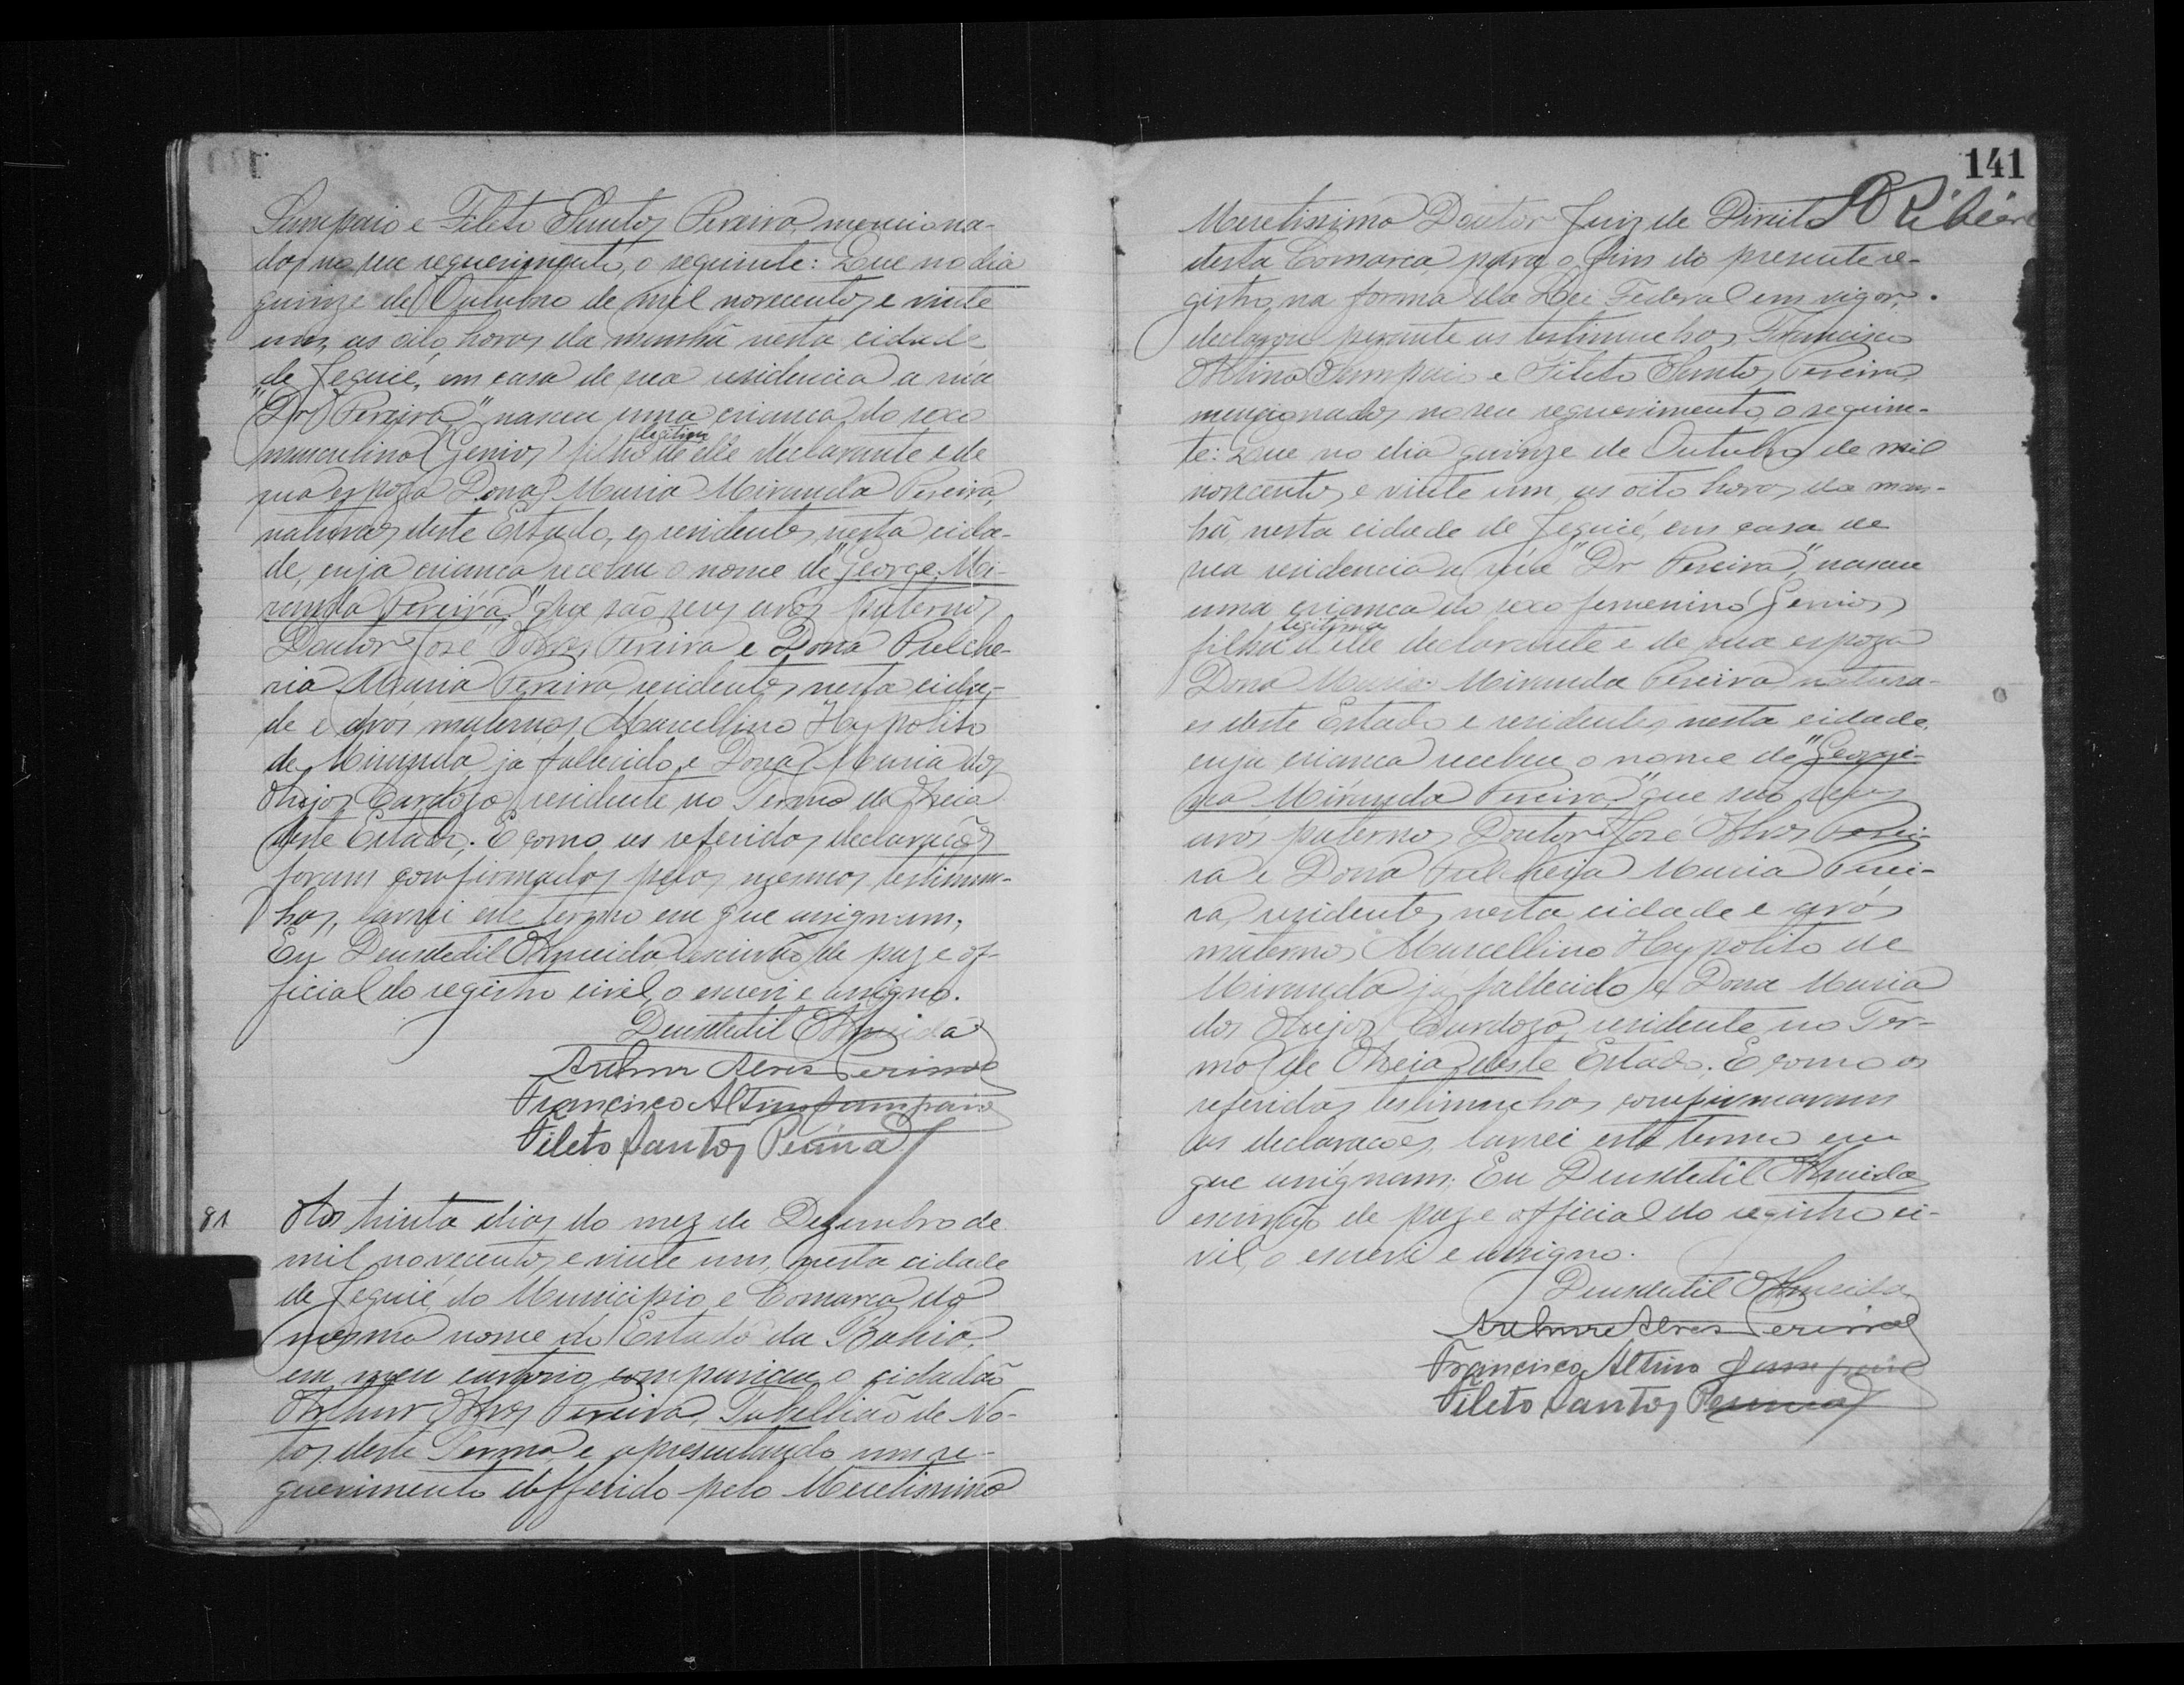 Sampaio e Fileto Santos Pereira, menciona-
dos no seu requerimento, o seguinte: Que no dia
quinze de Outubro de mil novecentos e vinte
um, as oito horas da manhã nesta cidade
de Jequié, em casa de sua residencia a rua
"Dr Pereira", nasceu uma criança do sexo
masculino (Gemios) filho legitimo de elle declarante e de
sua espoza Dona Maria Miranda Pereira,
naturaes deste Estado, e residentes nesta cida-
de, cuja criança recebeu o nome de "George Mi-
randa Pereira," que são seus avós paternos
Doutor José Alves Pereira e Dona Pulche-
ria Maria Pereira residentes nesta cida-
de e avós maternos Marcellino Hypolito
de Miranda já fallecido, e Dona Maria dos
Anjos Cardozo, residente no Termo de Areia
deste Estado. E como as referidas declarações
foram confirmados pelas mesmas testimun-
has, lavrei este termo em que assignam;
Eu Deusdedil Almeida escrivão de paz e of-
ficial do registro civil, o escrevi e assigno.
Deusdedil Almeida
Arthur Alves Pereira
Francisco Altino Sampaio
Fileto Santos Pereira
81 Aos trinta dias do mez de Dezembro de
mil novecentos e vinte um, nesta cidade
de Jequié, do Municipio e Comarca do
mesmo nome do Estado da Bahia,
em meu cartorio compareceu o cidadão
Arthur Alves Pereira, Tabellião de No-
tas deste Termo, e apresentando um re-
querimento defferido pelo Meretissimo
141
Meretissimo Doutor Juiz de Direito Ribeiro
desta Comarca, para o fim do presente re-
gistro, na forma da Lei Federal em vigor,
declarou perante as testimunhas, Francisco
Altino Sampaio e Fileto Santos Pereira
mencionados, no seu requerimento, o seguin-
te: Que no dia quinze de Outubro de mil
novecentos e vinte um, as oito horas da man-
hã, nesta cidade de Jequié, em casa de
sua residencia a rua "Dr Pereira", nasceu
uma criança do sexo femenino (Gemios)
filha legitima d'elle declarante e de sua espoza
Dona Maria Miranda Pereira natura-
es deste Estado e residentes, nesta cidade,
cuja criança recebeu o nome de "Georgi-
na Miranda Pereira," que são seus
avós paternos Doutor José Alves Perei-
ra e Dona Pulcheria Maria Perei-
ra, residentes nesta cidade e avós
maternos Marcellino Hypolito de
Miranda já fallecido e Dona Maria
dos Anjos Cardozo, residente no Ter-
mo de Areia deste Estado. E como as
referidas testimunhas confirmaram
as declarações, lavrei este termo em
que assignam; Eu Deusdedil Almeida
escrivão de paz e official do registro ci-
vil, o escrevi e assigno.
Deusdedil Almeida
Arthur Alves Pereira
Francisco Altino Sampaio
Fileto Santos Pereira